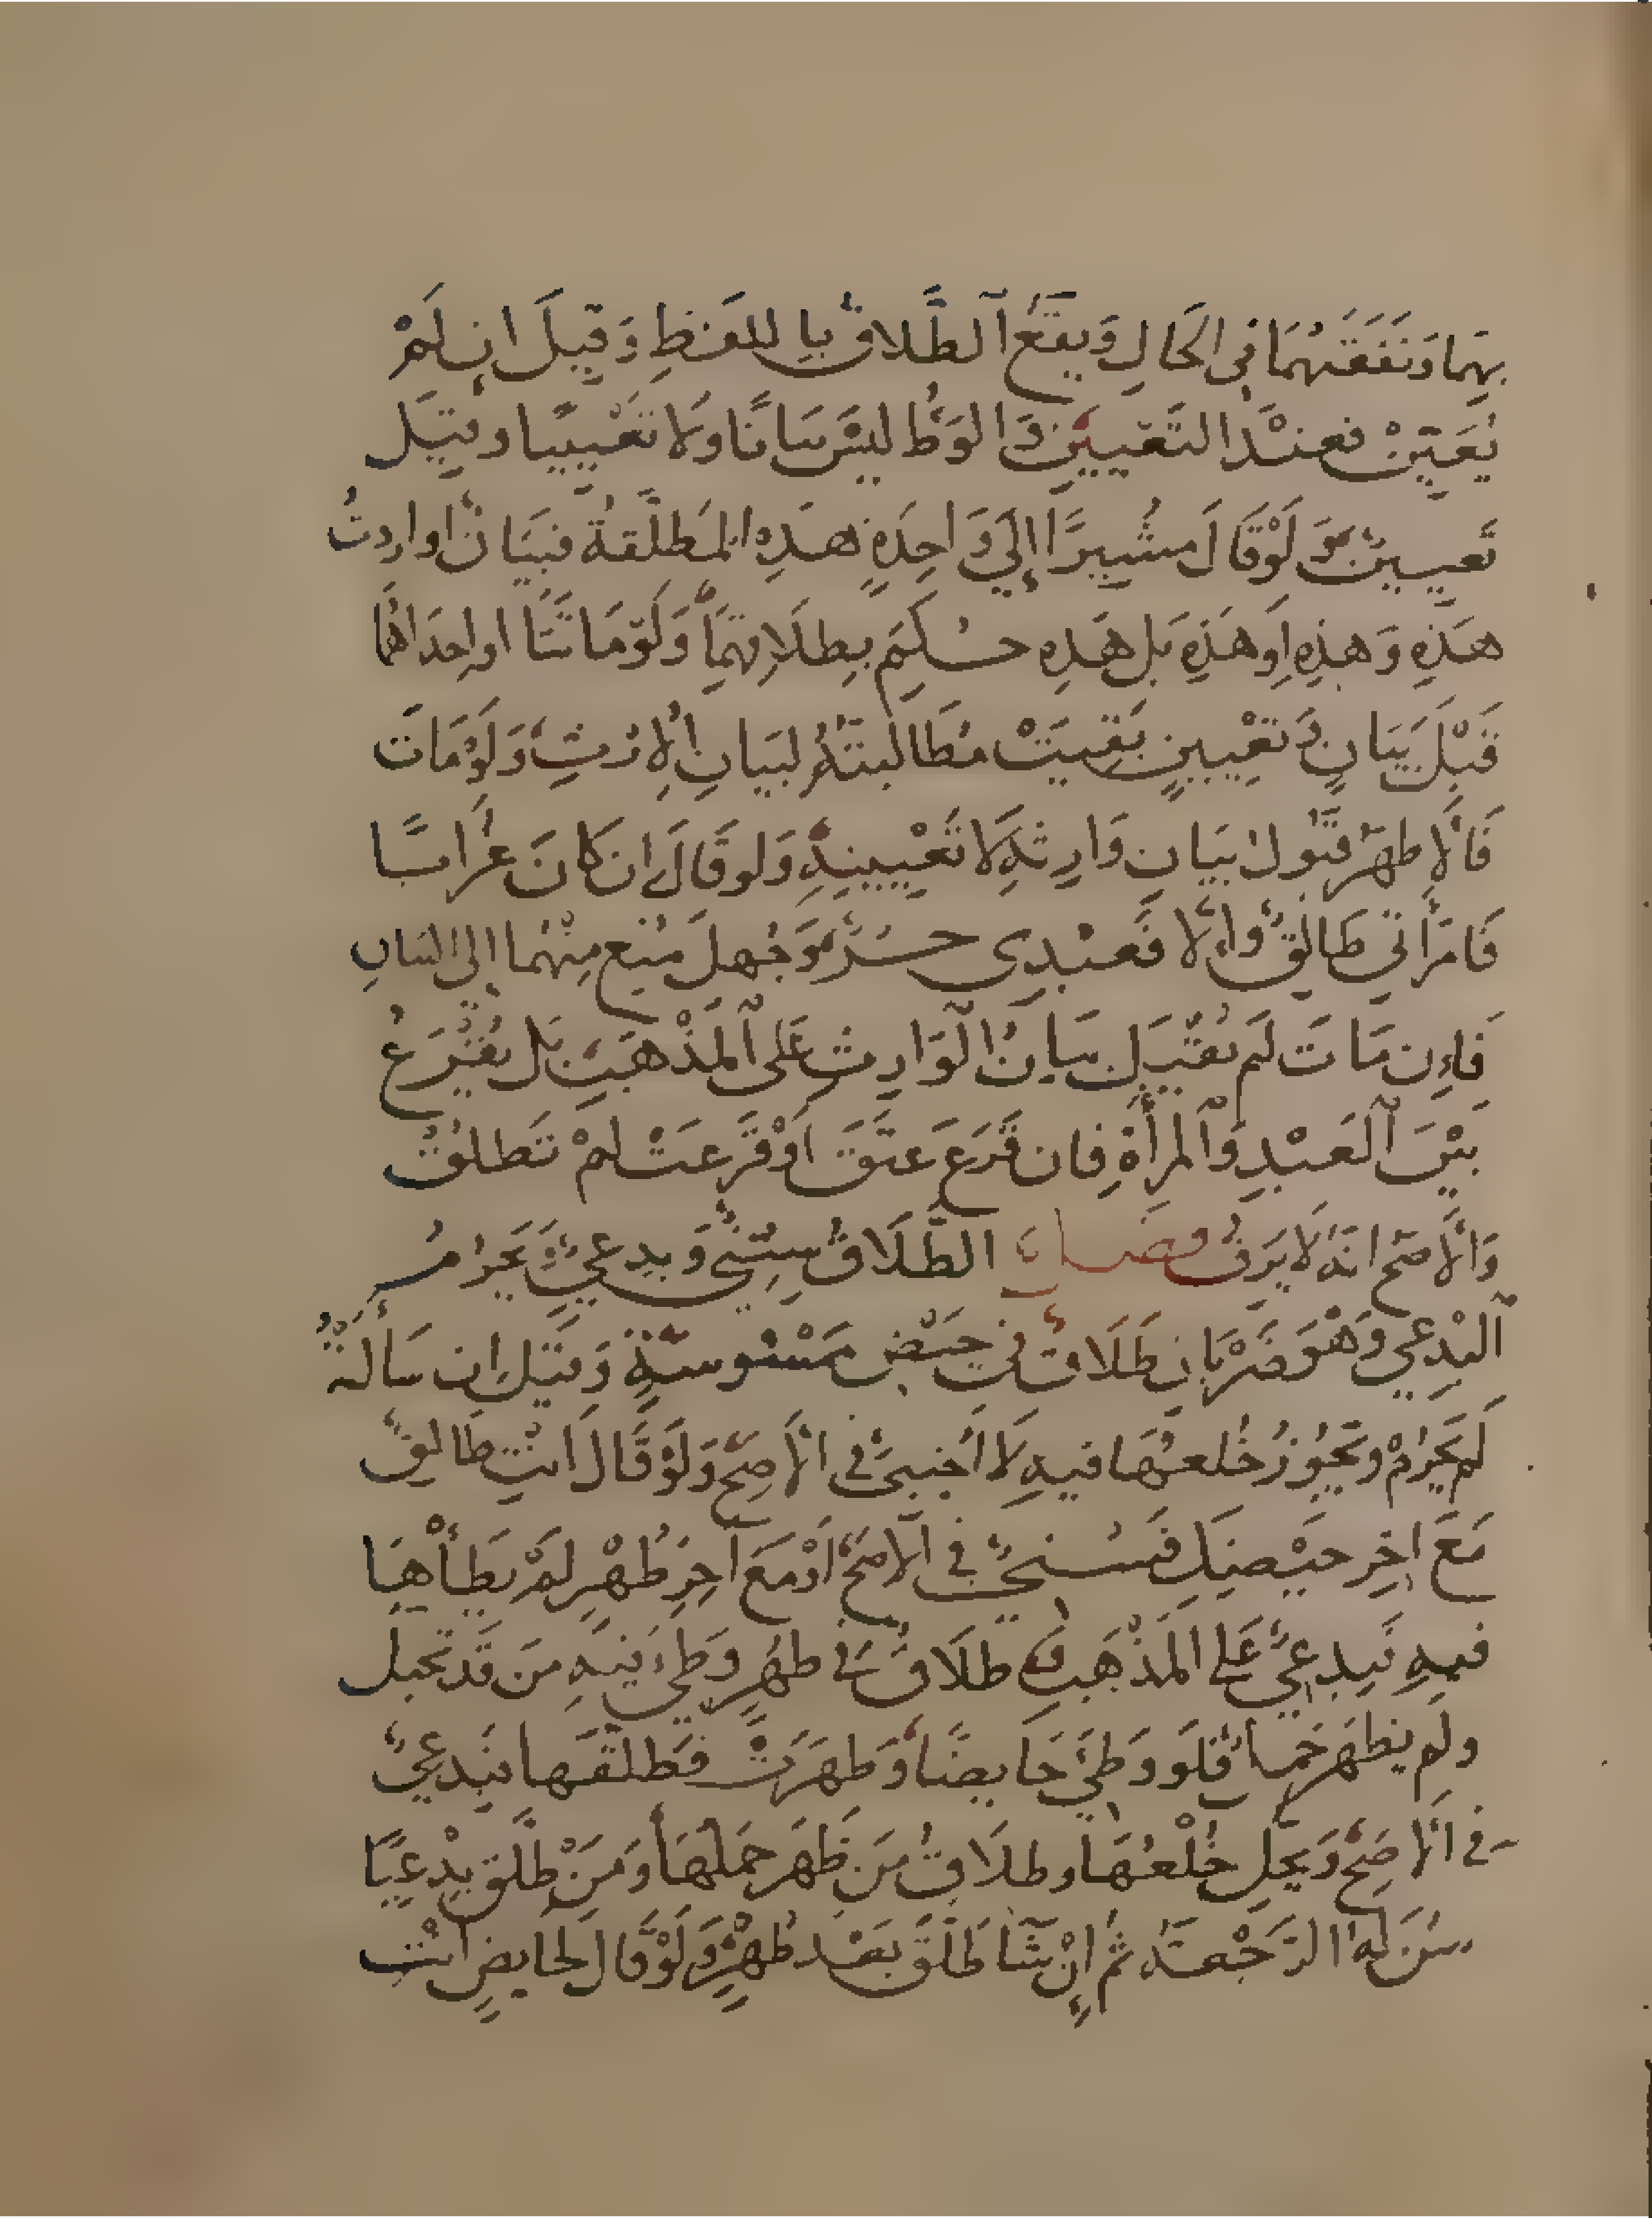 بهما ونفقتهما في الحال ويقع الطلاق باللفظ وقيل ان لم
يعين فعند التعيين والوطؤ ليس بيانا ولا تعيينا وقيل
تعيين ولو قال مشيرا إلى واحدة هذه المطلقة فبيان او اردت
هذه وهذه او هذه بل هذه حكم بطلاقهما ولو ماتتا او احداهما
قبل بيان وتعيين بقيت مطالبته لبيان الارث ولو مات
فالاظهر قبول بيان وارثه لا تعيينه ولو قال ان كان غرابا
فامرأتي طالق والا فعبدي حر وجهل منع منهما الى البيان
فان مات لم يقبل بيان الوارث على المذهب بل يقرع
بين العبد والمرأة فان قرع عتق او قرعت لم تطلق
والاصح انه لا يرق فصل الطلاق سني وبدعي ويحرم
البدعي وهو ضربان طلاق في حيض ممسوسة وقيل ان سألته
لم يحرم ويجوز خلعها فيه لا اجنبي في الاصح ولو قال انت طالق
مع اخر حيضك فسني في الاصح او مع اخر طهر لم يطأها
فيه فبدعي على المذهب وطلاق في طهر وطئ فيه من قد تحبل
ولم يظهر حمل فلو وطئ حايضا وطهرت فطلقها فبدعي
في الاصح ويحل خلعها وطلاق من ظهر حملها ومن طلق بدعيا
سن له الرجعة ثم ان شا طلق بعد طهر ولو قال لحايض انت